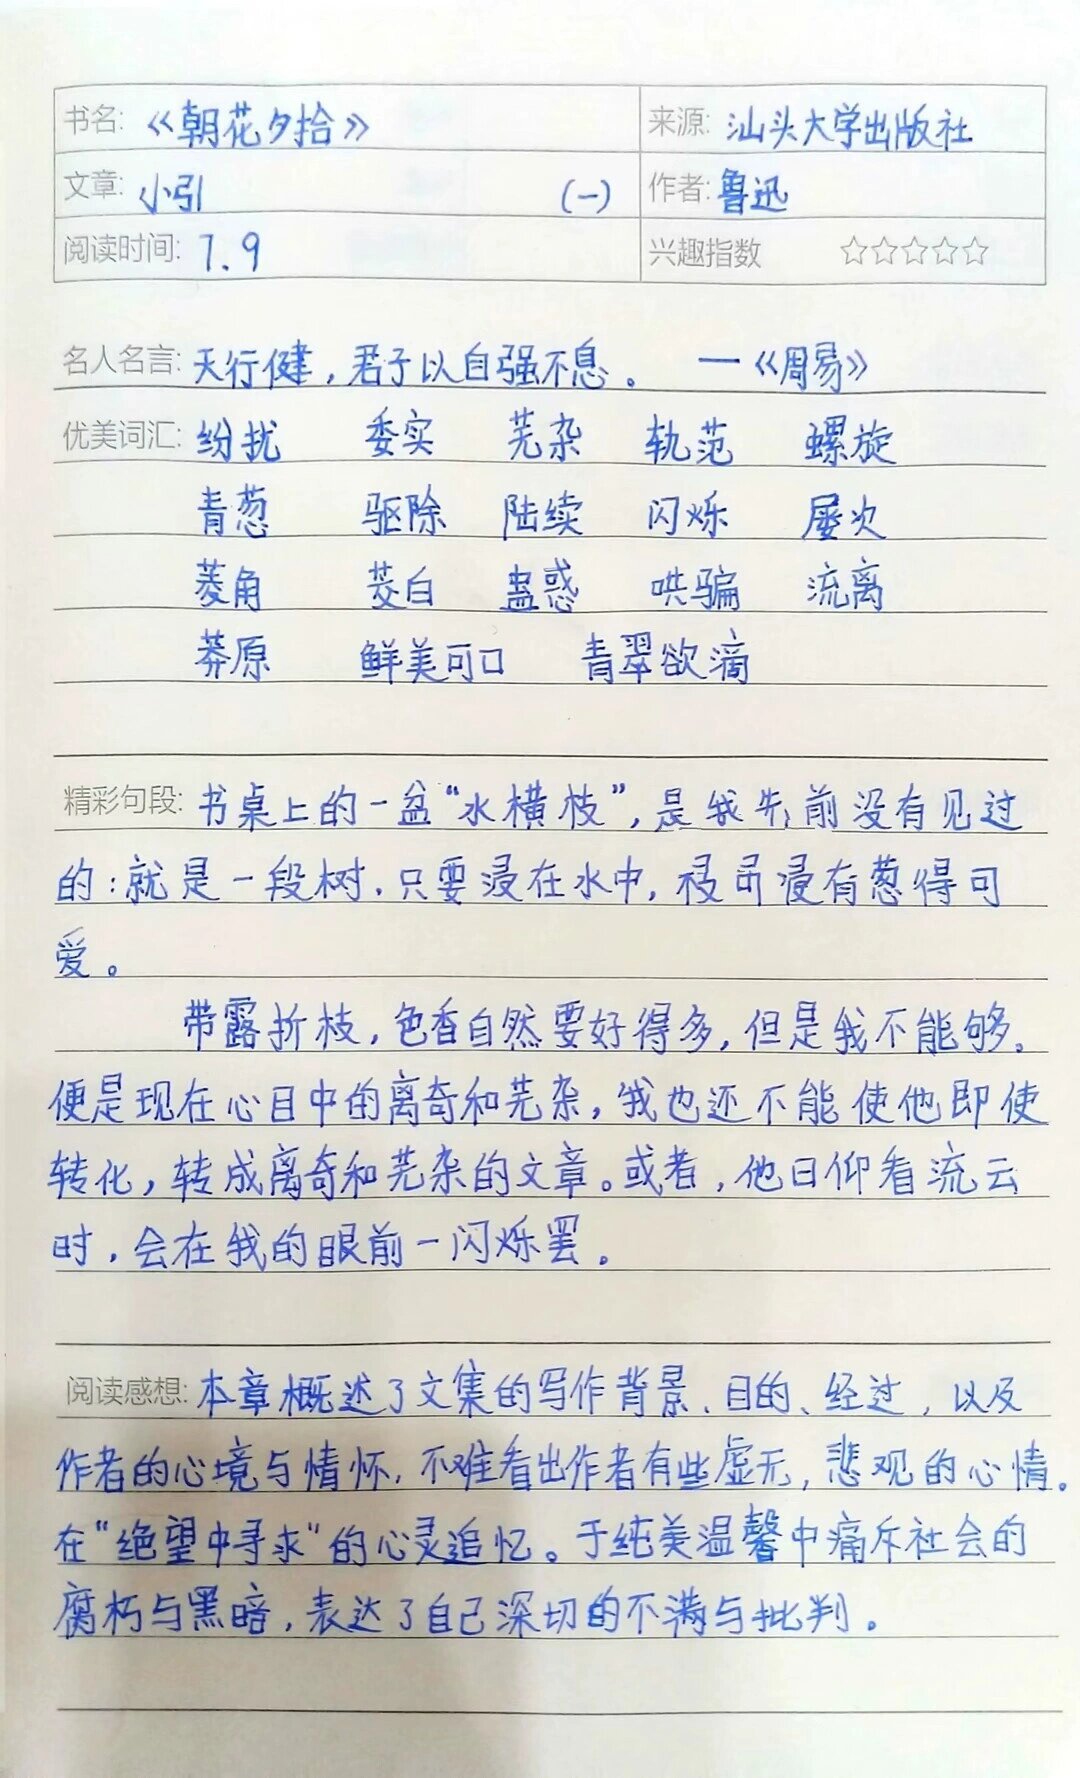 书名: 《朝花夕拾》 来源: 汕头大学出版社
文章: 小引 (一) 作者: 鲁迅
阅读时间: 7.9 兴趣指数 ☆☆☆☆☆
名人名言: 天行健,君子以自强不息。 —《周易》
优美词汇: 纷扰 委实 芜杂 轨范 螺旋
青葱 驱除 陆续 闪烁 屡次
菱角 茭白 蛊惑 哄骗 流离
莽原 鲜美可口 青翠欲滴
精彩句段: 书桌上的一盆“水横枝”,是我先前没有见过
的:就是一段树,只要浸在水中, 有葱得可
爱。
带露折枝,色香自然要好得多,但是我不能够。
便是现在心目中的离奇和芜杂,我也还不能使他即使
转化,转成离奇和芜杂的文章。或者,他日仰看流云
时,会在我的眼前一闪烁罢。
阅读感想: 本章概述了文集的写作背景、目的、经过,以及
作者的心境与情怀,不难看出作者有些虚无,悲观的心情。
在“绝望中寻求”的心灵追忆。于纯美温馨中痛斥社会的
腐朽与黑暗,表达了自己深切的不满与批判。